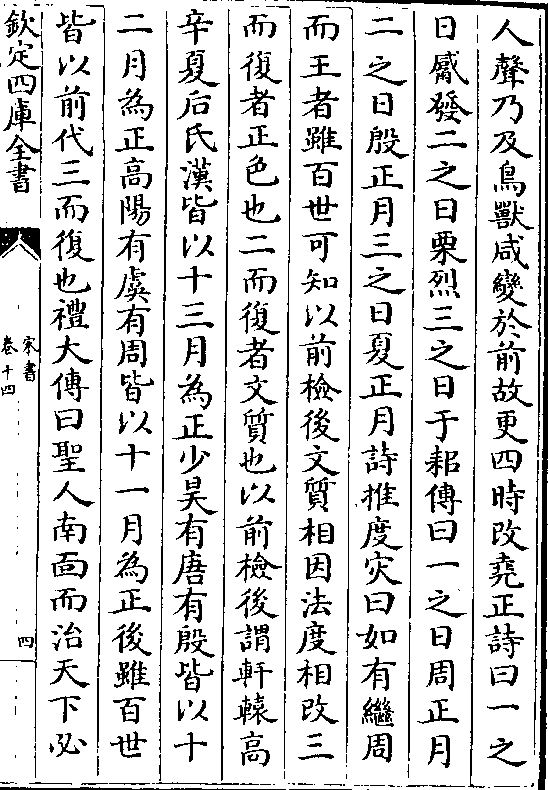 人聲乃及鳥獸咸變於前故更四時改堯正詩曰一之
日觱發二之日栗烈三之日于耜傳曰一之日周正月
二之日殷正月三之日夏正月詩推度灾曰如有繼周
而王者雖百世可知以前檢後文質相因法度相改三
而復者正色也二而復者文質也以前檢後謂軒轅高
辛夏后氏漢皆以十三月為正少昊有唐有殷皆以十
二月為正高陽有虞有周皆以十一月為正後雖百世
皆以前代三而復也禮大傳曰聖人南面而治天下必
欽定四庫全書
宋書
卷十四
四